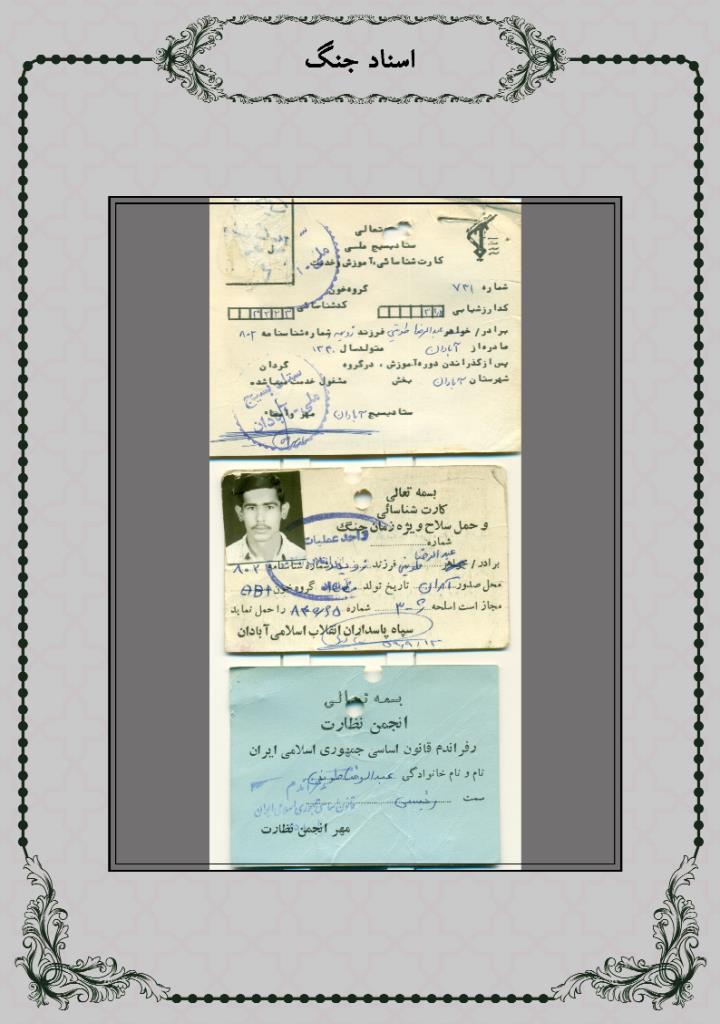 اسناد جنگ
بسمه تعالی
ستاد بسیج ملی
کارت شناسائی، آموزش و خدمت
شماره ۷۳۱
گروه خون
کد ارزشیابی کد شناسائی
برادر / خواهر عبدالرضا فرزند شماره شناسنامه ۸۰۲
صادره از آبادان متولد سال ۱۳۴۰
پس از گذراندن دوره آموزش ، در گروه گردان
شهرستان آبادان بخش مشغول خدمت میباشد
ستاد بسیج آبادان مهر و امضاء
ستاد بسیج
ملی آبادان
بسمه تعالی
کارت شناسائی
و حمل سلاح ویژه زمان جنگ
شماره
برادر / خواهر عبدالرضا فرزند شماره شناسنامه ۸۰۲
محل صدور آبادان تاریخ تولد گروه خون
مجاز است اسلحه ژ-۳ شماره را حمل نماید
سپاه پاسداران انقلاب اسلامی آبادان
واحد عملیات
بسمه تعالی
انجمن نظارت
رفراندم قانون اساسی جمهوری اسلامی ایران
نام و نام خانوادگی عبدالرضا
سمت
قانون اساسی جمهوری اسلامی ایران
مهر انجمن نظارت